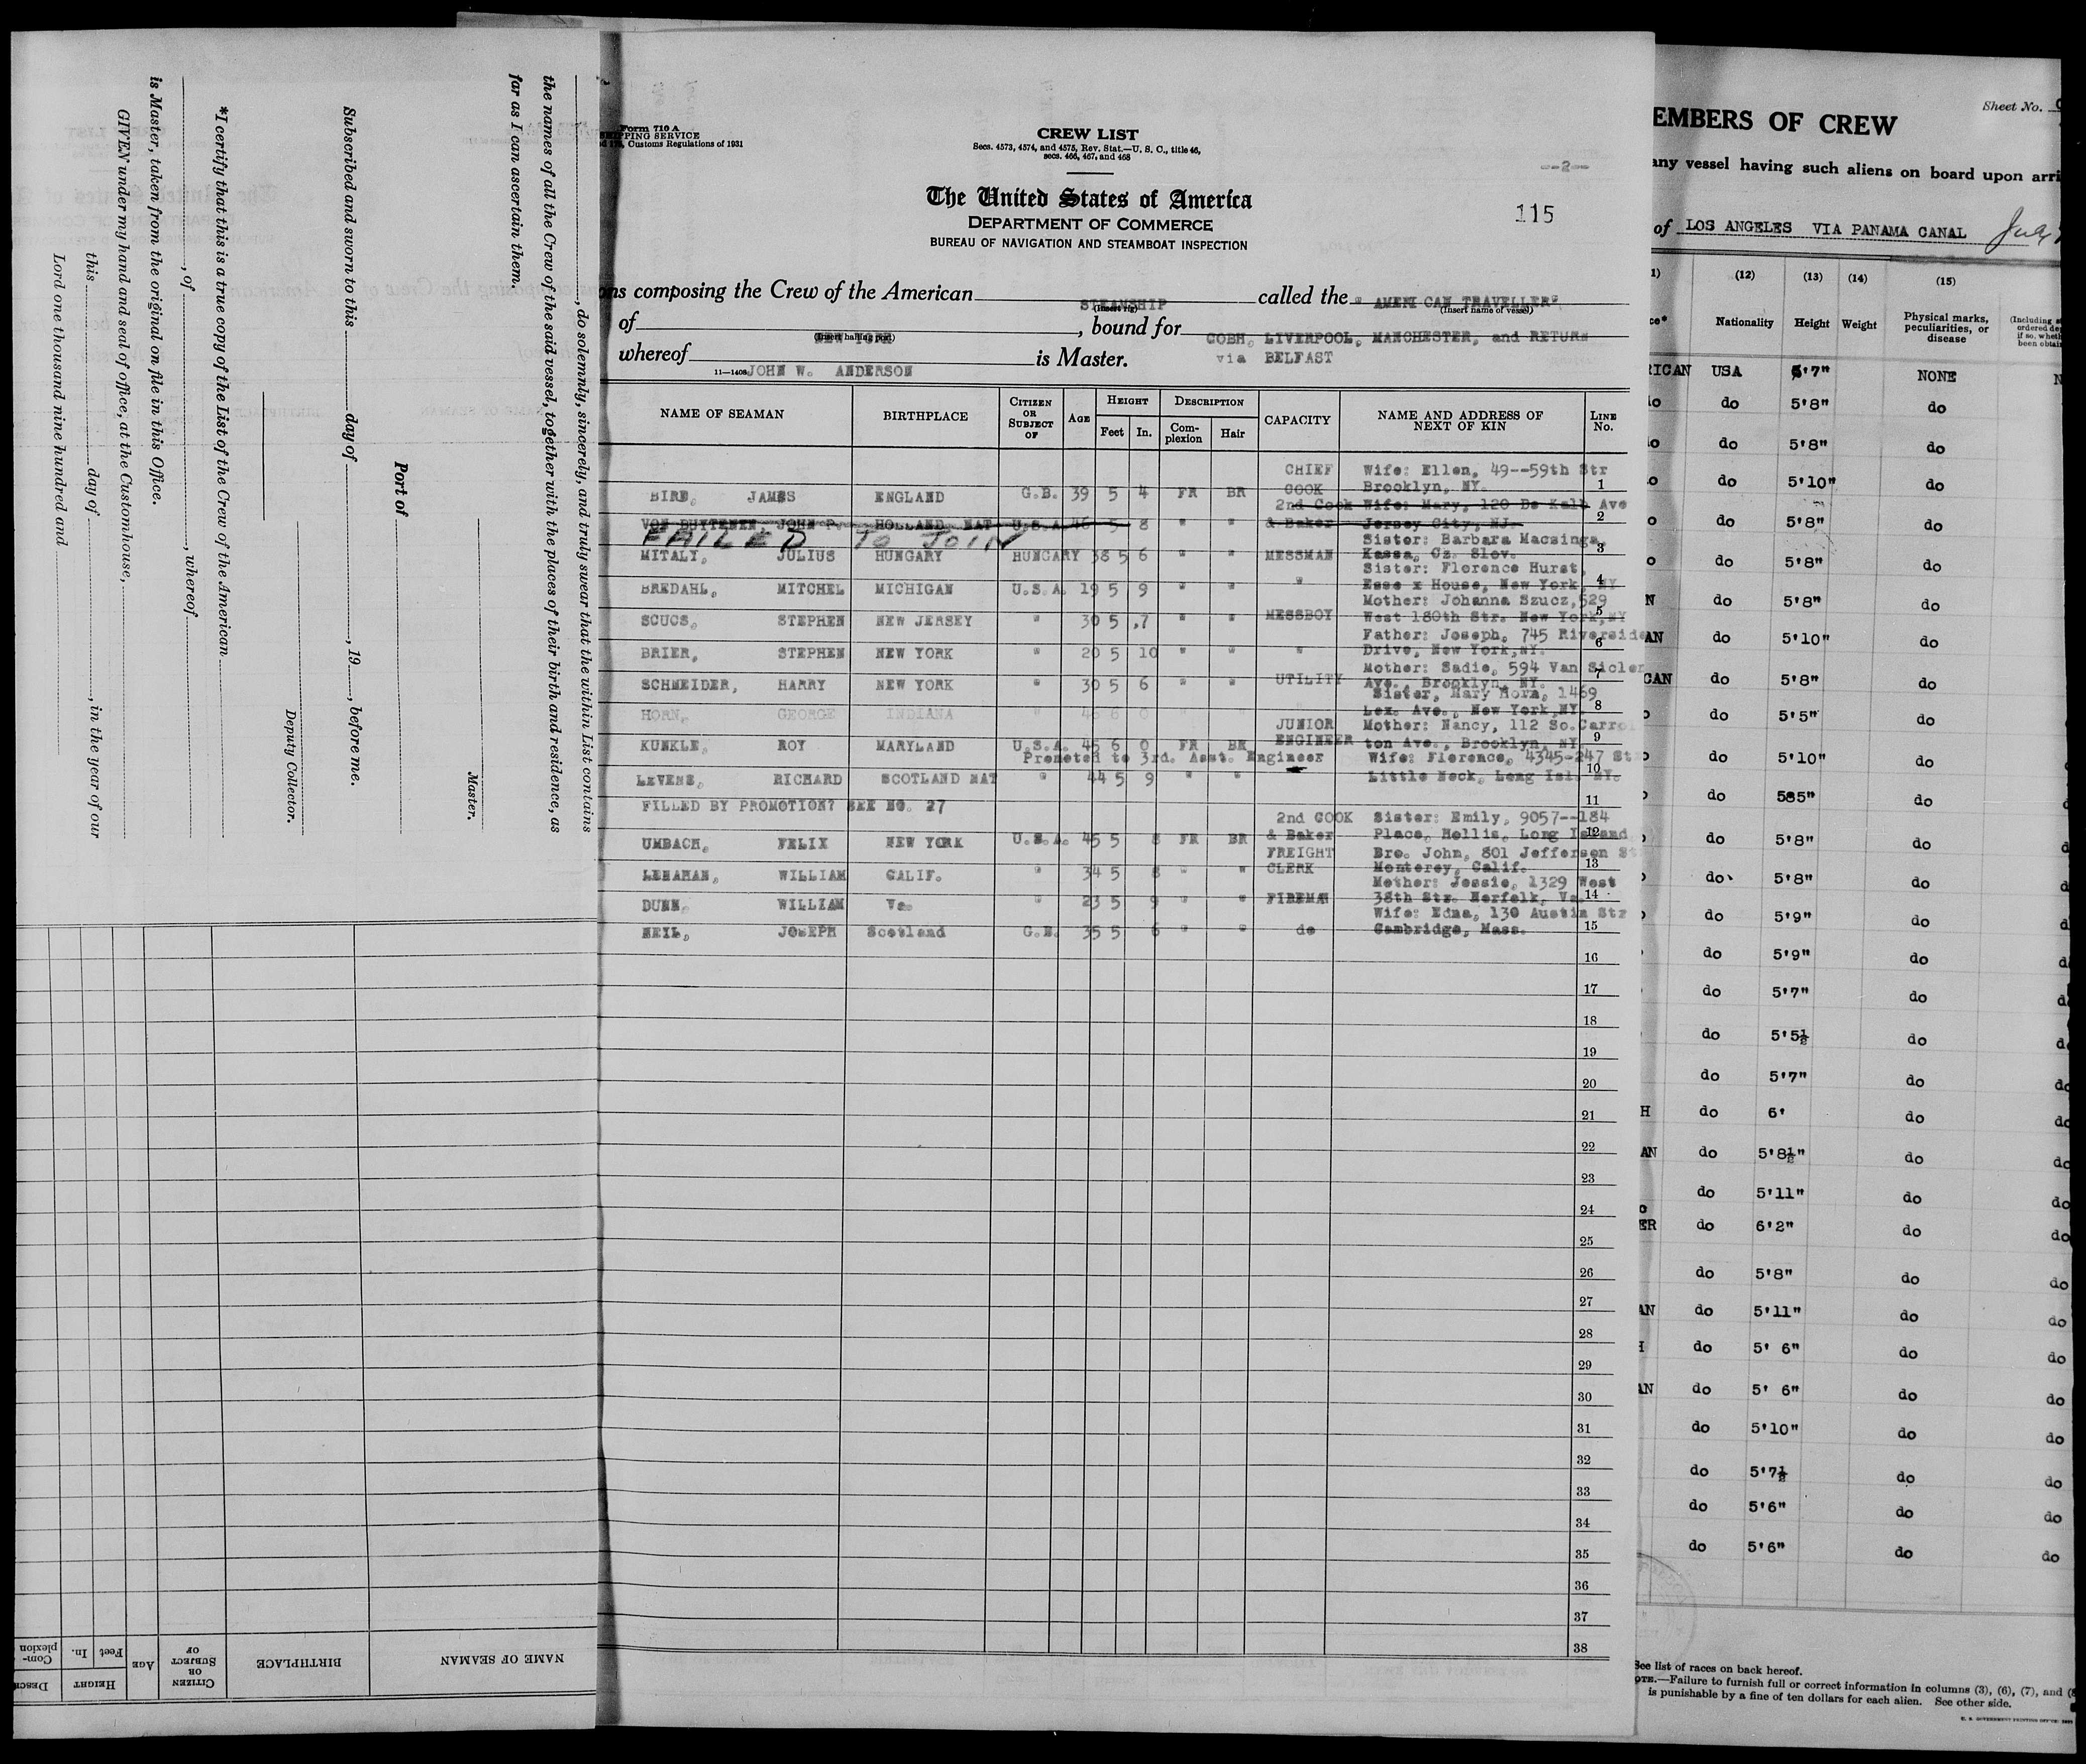 the names of all the Crew of the said vessel, together with the places of their birth and residence, as
far as I can ascertain them.
, do solemnly, sincerely, and truly swear that the within List contains
Master.
Port of
Subscribed and sworn to this day of , 19 , before me.
Deputy Collector.
*I certify that this is a true copy of the List of the Crew of the American
, of , whereof
is Master, taken from the original on file in this Office.
GIVEN under my hand and seal of office, at the Customhouse,
this day of , in the year of our
Lord one thousand nine hundred and
NAME OF SEAMAN
BIRTHPLACE
CITIZEN OR SUBJECT OF
AGE
HEIGHT
Feet In.
Com-plexion
Form 710 A
SHIPPING SERVICE
Customs Regulations of 1931
CREW LIST
Secs. 4573, 4574, and 4575, Rev. Stat.—U. S. C., title 46,
secs. 466, 467, and 468
--2--
The United States of America
DEPARTMENT OF COMMERCE
BUREAU OF NAVIGATION AND STEAMBOAT INSPECTION
115
ons composing the Crew of the American STEAMSHIP called the " AMERICAN TRAVELLER"
(Insert rig) (Insert name of vessel)
of NEW YORK , bound for COBH, LIVERPOOL, MANCHESTER, and RETURN
(Insert hailing port)
whereof JOHN W. ANDERSON is Master. via BELFAST
11—1408
NAME OF SEAMAN BIRTHPLACE CITIZEN OR SUBJECT OF AGE HEIGHT Feet In. DESCRIPTION Com-plexion Hair CAPACITY NAME AND ADDRESS OF NEXT OF KIN LINE No.
CHIEF Wife: Ellen, 49--59th Str
BIRD, JAMES ENGLAND G.B. 39 5 4 FR BR COOK Brooklyn, NY. 1
2nd Cook Wife: Mary, 120 De Kalb Ave
VON BUYTENEN, JOHN P. HOLLAND NAT U.S.A. 46 5 8 " " & Baker Jersey City, NJ. 2
FAILED TO JOIN
Sister: Barbara Macsinga,
MITALY, JULIUS HUNGARY HUNGARY 38 5 6 " " MESSMAN Kassa, Cz. Slov. 3
Sister: Florence Hurst,
BREDAHL, MITCHEL MICHIGAN U.S.A. 19 5 9 " " " Essex House, New York, NY 4
Mother: Johanna Szucz, 529
SCUCS, STEPHEN NEW JERSEY " 30 5 7 " " MESSBOY West 180th Str. New York, NY 5
Father: Joseph, 745 Riverside
BRIER, STEPHEN NEW YORK " 20 5 10 " " " Drive, New York, NY. 6
Mother: Sadie, 594 Van Siclen
SCHNEIDER, HARRY NEW YORK " 30 5 6 " " UTILITY Ave., Brooklyn, NY. 7
Sister, Mary Horn, 1469
HORN, GEORGE INDIANA " 46 6 0 Lex. Ave., New York, NY. 8
JUNIOR Mother: Nancy, 112 So. Carrol
KUNKLE, ROY MARYLAND U.S.A. 45 6 0 FR BR ENGINEER ton Ave., Brooklyn, NY 9
Promoted to 3rd. Asst. Engineer Wife: Florence, 4345-247 St
LeVENE, RICHARD SCOTLAND NAT " 44 5 9 " " Little Neck, Long Isl. NY. 10
FILLED BY PROMOTION? SEE NO. 27 11
2nd COOK Sister: Emily, 9057--184
UMBACH, FELIX NEW YORK U.S.A. 45 5 8 FR BR & Baker Place, Hollis, Long Island 12
FREIGHT Bro. John, 801 Jefferson St
LENAHAN, WILLIAM CALIF. " 34 5 8 " " CLERK Monterey, Calif. 13
Mother: Jessie, 1329 West
DUNN, WILLIAM Va. " 23 5 9 " " FIREMAN 38th Str. Norfolk, Va. 14
Wife: Edna, 130 Austin Str
NEIL, JOSEPH Scotland G.B. 35 5 6 " " do Cambridge, Mass. 15
16
17
18
19
20
21
22
23
24
25
26
27
28
29
30
31
32
33
34
35
36
37
38
Sheet No.
EMBERS OF CREW
any vessel having such aliens on board upon arri
of LOS ANGELES VIA PANAMA CANAL
(12) (13) (14) (15)
Nationality Height Weight Physical marks, peculiarities, or disease
RICAN USA 5'7" NONE
do do 5'8" do
do 5'8" do
do 5'10" do
do 5'8" do
do 5'8" do
N do 5'8" do
AN do 5'10" do
CAN do 5'8" do
do 5'5" do
do 5'10" do
do 585" do
do 5'8" do
do 5'8" do
do 5'9" do
do 5'9" do
do 5'7" do
do 5'5½ do
do 5'7" do
H do 6' do
AN do 5'8½" do
do 5'11" do
ER do 6'2" do
do 5'8" do
AN do 5'11" do
do 5' 6" do
AN do 5' 6" do
do 5'10" do
do 5'7½ do
do 5'6" do
do 5'6" do
See list of races on back hereof.
OTE.—Failure to furnish full or correct information in columns (3), (6), (7), and
is punishable by a fine of ten dollars for each alien. See other side.